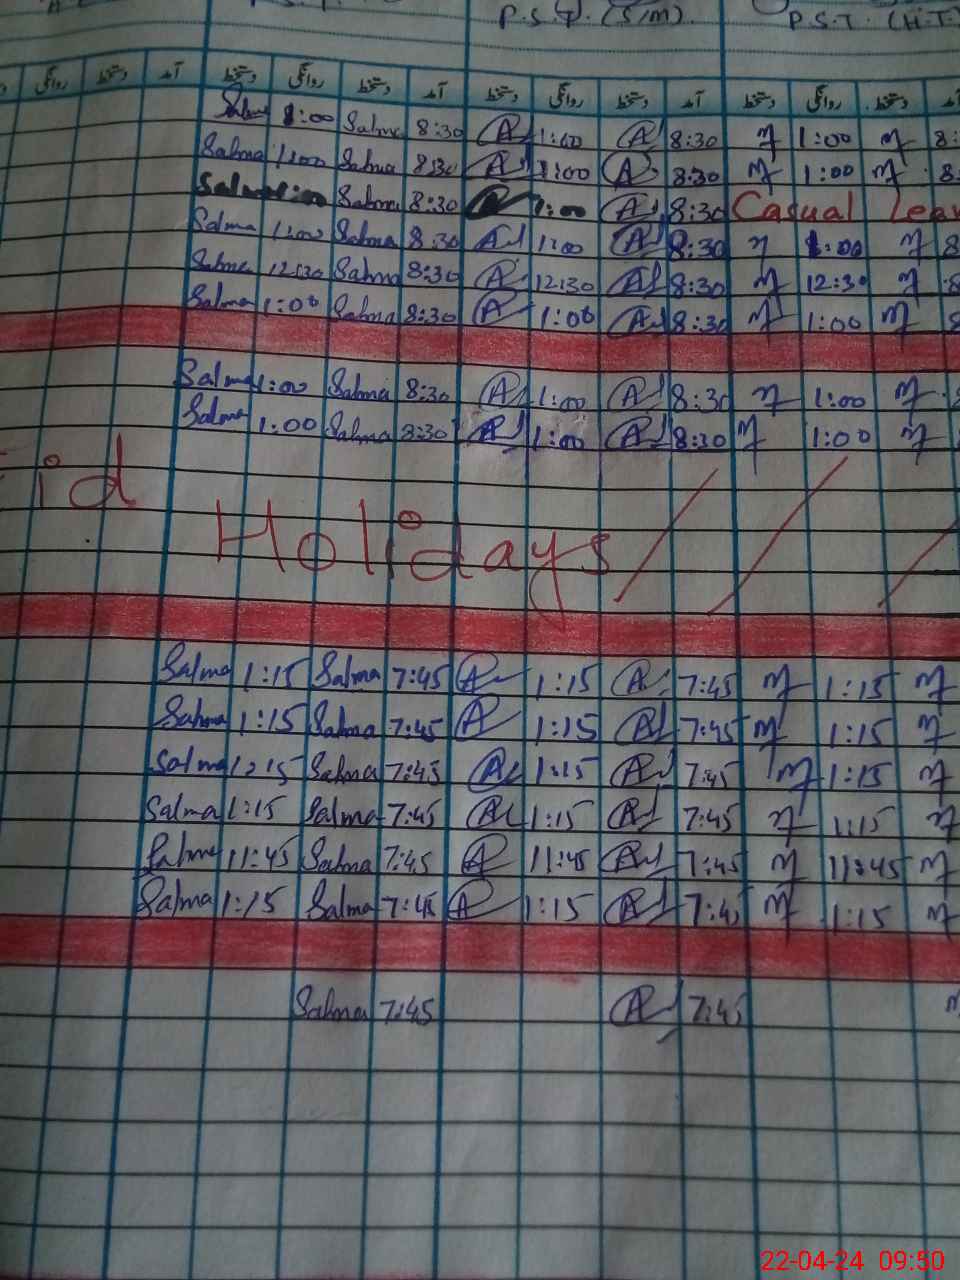 P.S.T. (S/M). P.S.T. (H.T.)
روانگی دستخط آمد دستخط روانگی دستخط آمد دستخط روانگی دستخط آمد دستخط روانگی دستخط آمد
Salma 1:00 Salma 8:30 A 1:00 A 8:30 M 1:00 M 8:
Salma 1:00 Salma 8:30 A 1:00 A 8:30 M 1:00 M 8
Salma Salma 8:30 1:00 A 8:30 Casual Leav
Salma 1:00 Salma 8:30 A 1:00 A 8:30 M 1:00 M 8
Salma 12:30 Salma 8:30 A 12:30 A 8:30 M 12:30 M 8
Salma 1:00 Salma 8:30 A 1:00 A 8:30 M 1:00 M 8
Salma 1:00 Salma 8:30 A 1:00 A 8:30 M 1:00 M
Salma 1:00 Salma 8:30 A 1:00 A 8:30 M 1:00 M
Eid Holidays
Salma 1:15 Salma 7:45 A 1:15 A 7:45 M 1:15 M
Salma 1:15 Salma 7:45 A 1:15 A 7:45 M 1:15 M
Salma 1:15 Salma 7:45 A 1:15 A 7:45 M 1:15 M
Salma 1:15 Salma 7:45 A 1:15 A 7:45 M 1:15 M
Salma 11:45 Salma 7:45 A 11:45 A 7:45 M 11:45 M
Salma 1:15 Salma 7:45 A 1:15 A 7:45 M 1:15 M
Salma 7:45 A 7:45 M
22-04-24 09:50